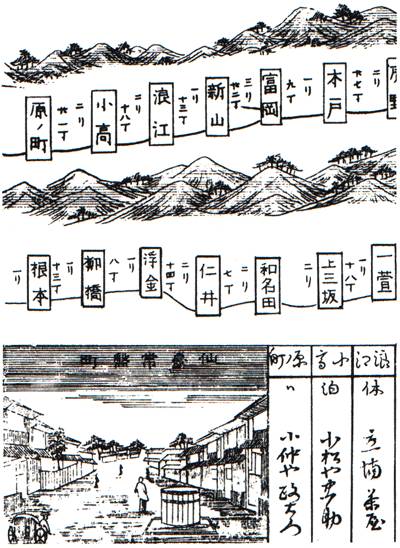 野 二リ 廿七丁 木戸 一リ 九丁 富岡 廿二丁 新山 一リ 十三丁 浪江 二リ 十八丁 小高 二リ 廿一丁 原ノ町
一萱 一リ 十八丁 上三坂 二リ 和名田 二リ 七丁 仁井 二リ 十四丁 浮金 一リ 八丁 柳橋 一リ 十三丁 根本 一リ
浪江 休 茶屋
小高 泊 小松や
原ノ町 〃 小仲や
仙臺常盤町